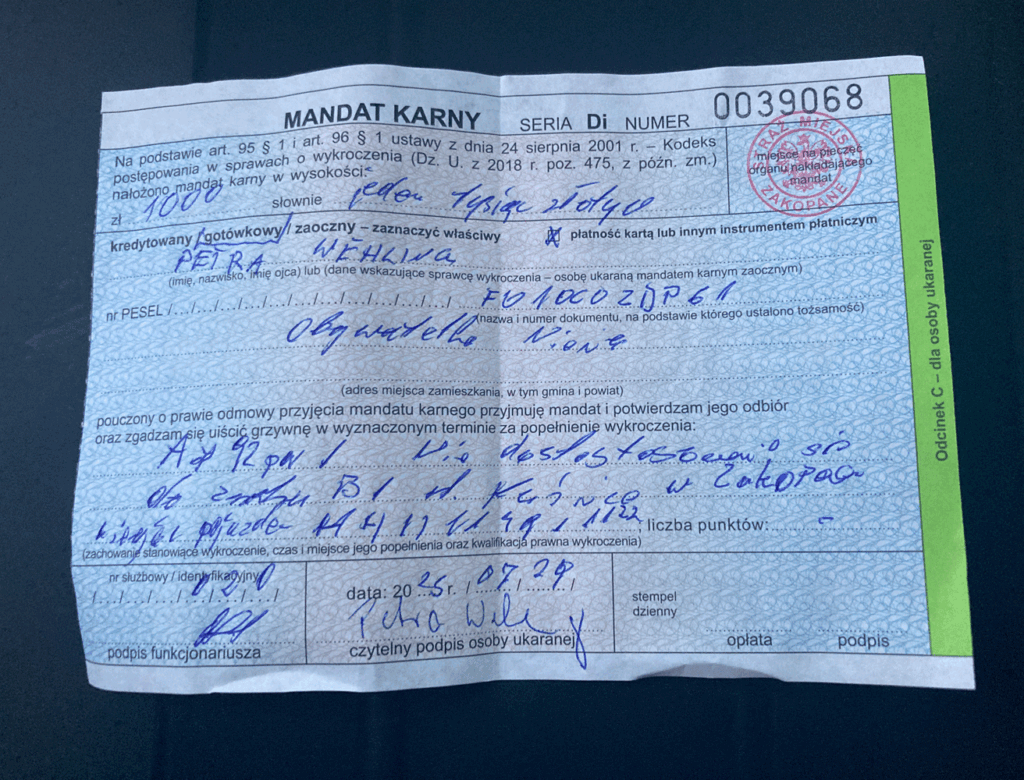 MANDAT KARNY SERIA Di NUMER 0039068
Na podstawie art. 95 § 1 i art. 96 § 1 ustawy z dnia 24 sierpnia 2001 r. – Kodeks
postępowania w sprawach o wykroczenia (Dz. U. z 2018 r. poz. 475, z późn. zm.)
nałożono mandat karny w wysokości:
STRAŻ MIEJSKA ZAKOPANE
miejsce na pieczęć
organu nakładającego
mandat
zł 1000 słownie jeden tysiąc złotych
kredytowany / gotówkowy / zaoczny – zaznaczyć właściwy X płatność kartą lub innym instrumentem płatniczym
PETRA
(imię, nazwisko, imię ojca) lub (dane wskazujące sprawcę wykroczenia – osobę ukaraną mandatem karnym zaocznym)
nr PESEL /..../..../..../..../..../..../..../..../..../..../
(nazwa i numer dokumentu, na podstawie którego ustalono tożsamość)
Obywatelka
(adres miejsca zamieszkania, w tym gmina i powiat)
pouczony o prawie odmowy przyjęcia mandatu karnego przyjmuję mandat i potwierdzam jego odbiór
oraz zgadzam się uiścić grzywnę w wyznaczonym terminie za popełnienie wykroczenia:
Art 92 par 1 Nie dostosowanie się
do znaku B1 ul. Kuźnice w Zakopanem
, liczba punktów: –
(zachowanie stanowiące wykroczenie, czas i miejsce jego popełnienia oraz kwalifikacja prawna wykroczenia)
nr służbowy / identyfikacyjny 020
podpis funkcjonariusza
data: 2025r. / 07 / 29 /
Petra
czytelny podpis osoby ukaranej
stempel
dzienny
opłata podpis
Odcinek C – dla osoby ukaranej